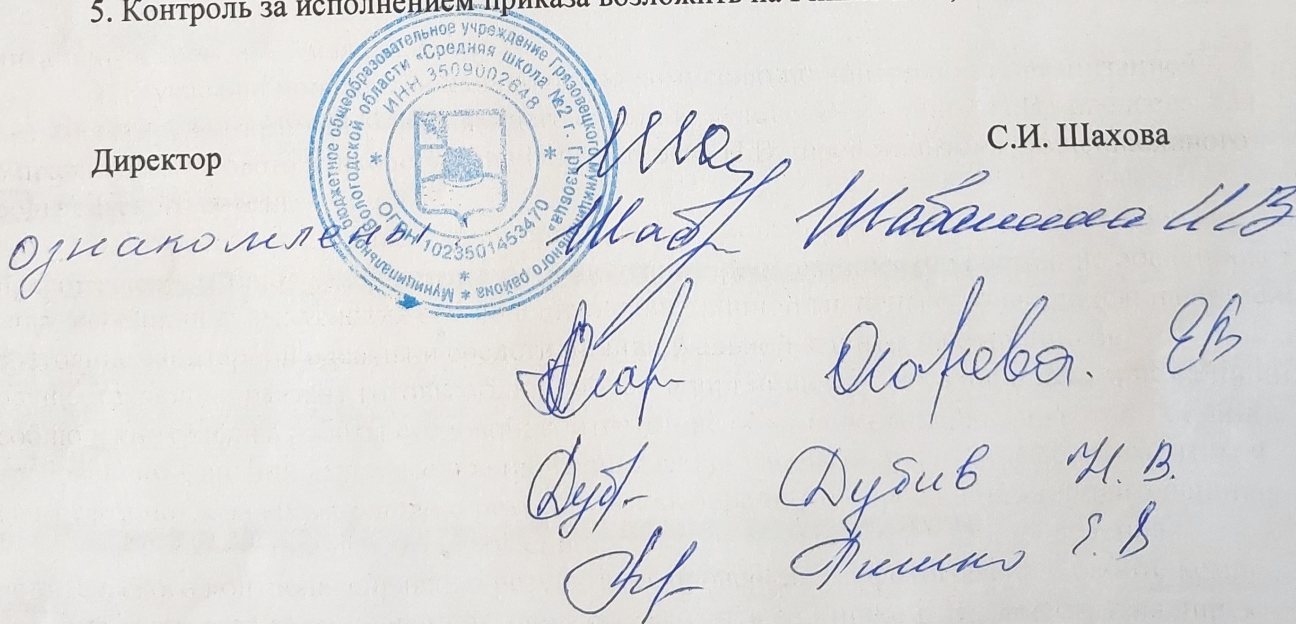 5. Контроль за исполнением приказа возложить на
Муниципальное бюджетное общеобразовательное учреждение Грязовецкого муниципального района
Вологодской области «Средняя школа №2 г. Грязовца»
ИНН 3509002648
ОГРН 1023501453470
Директор
С.И. Шахова
ознакомлены
Шаб
Е В
Дуб
Дубив Н. В.
Е. В